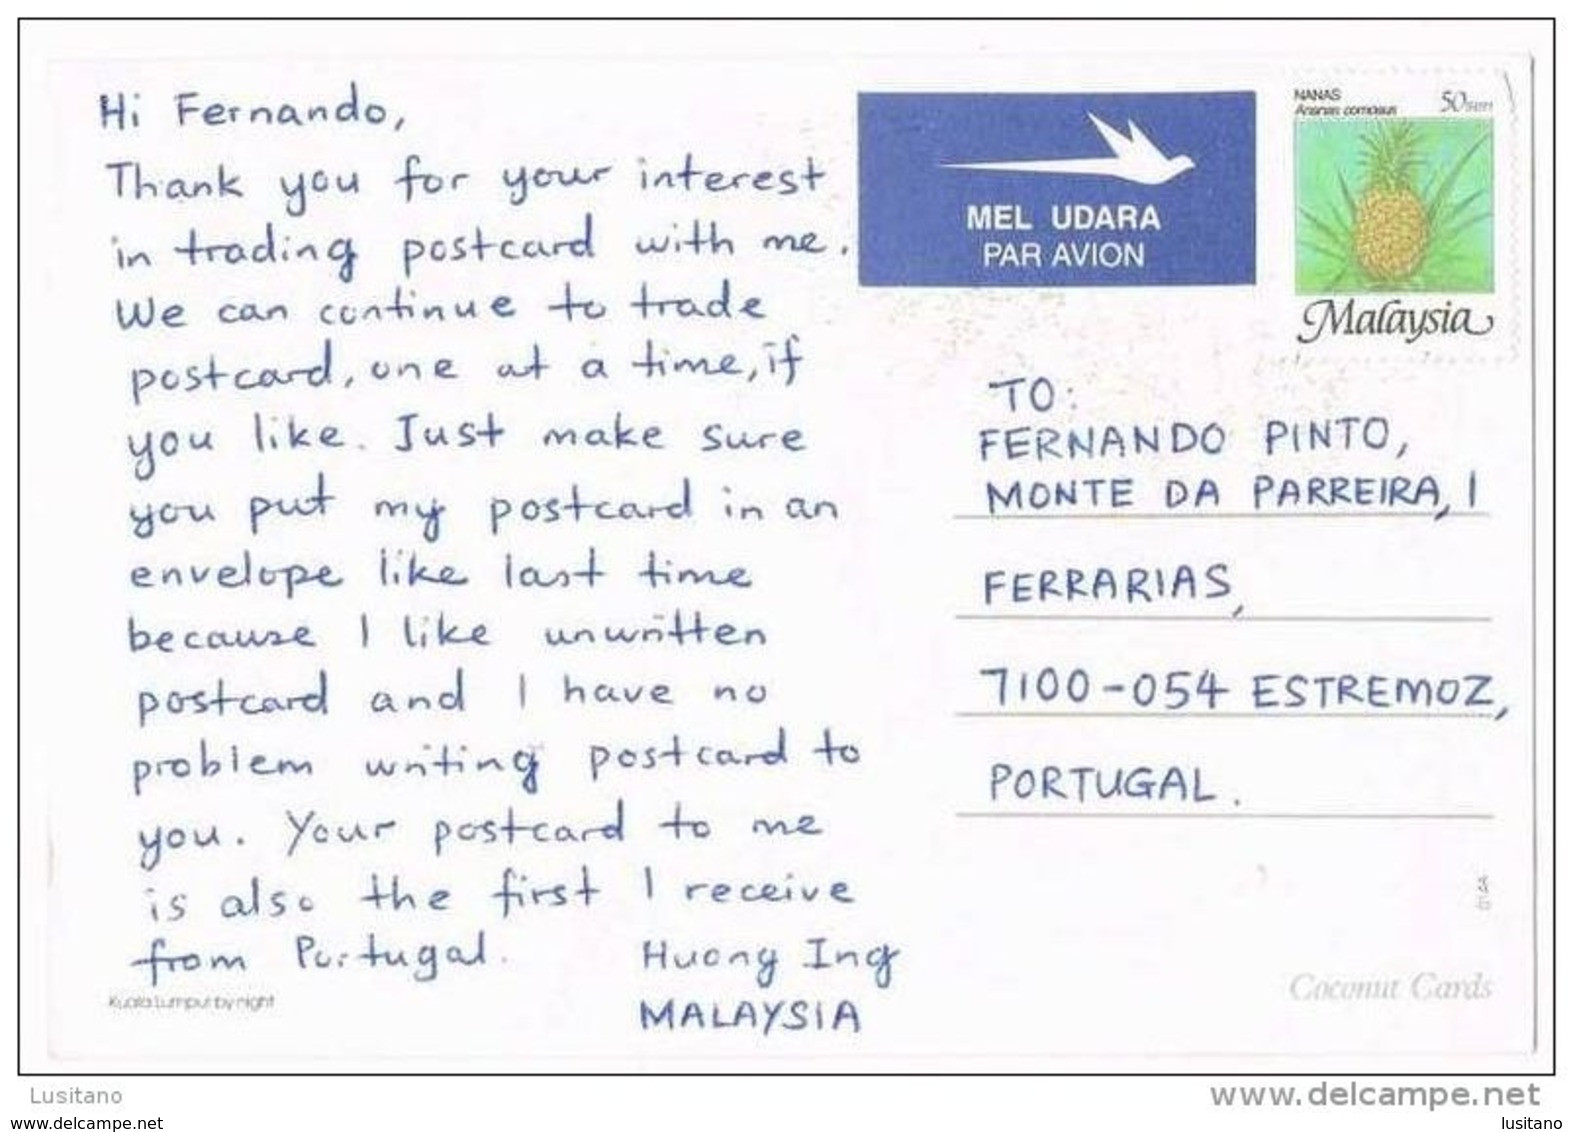 Hi Fernando,
Thank you for your interest
in trading postcard with me.
We can continue to trade
postcard, one at a time, if
you like. Just make sure
you put my postcard in an
envelope like last time
because I like unwritten
postcard and I have no
problem writing postcard to
you. Your postcard to me
is also the first I receive
from Portugal.
Huong Ing
MALAYSIA
Kuala Lumpur by night
MEL UDARA
PAR AVION
NANAS
Ananas comosus
50 sen
Malaysia
TO:
FERNANDO PINTO,
MONTE DA PARREIRA, 1
FERRARIAS,
7100-054 ESTREMOZ,
PORTUGAL.
Coconut Cards
Lusitano
www.delcampe.net
www.delcampe.net
lusitano